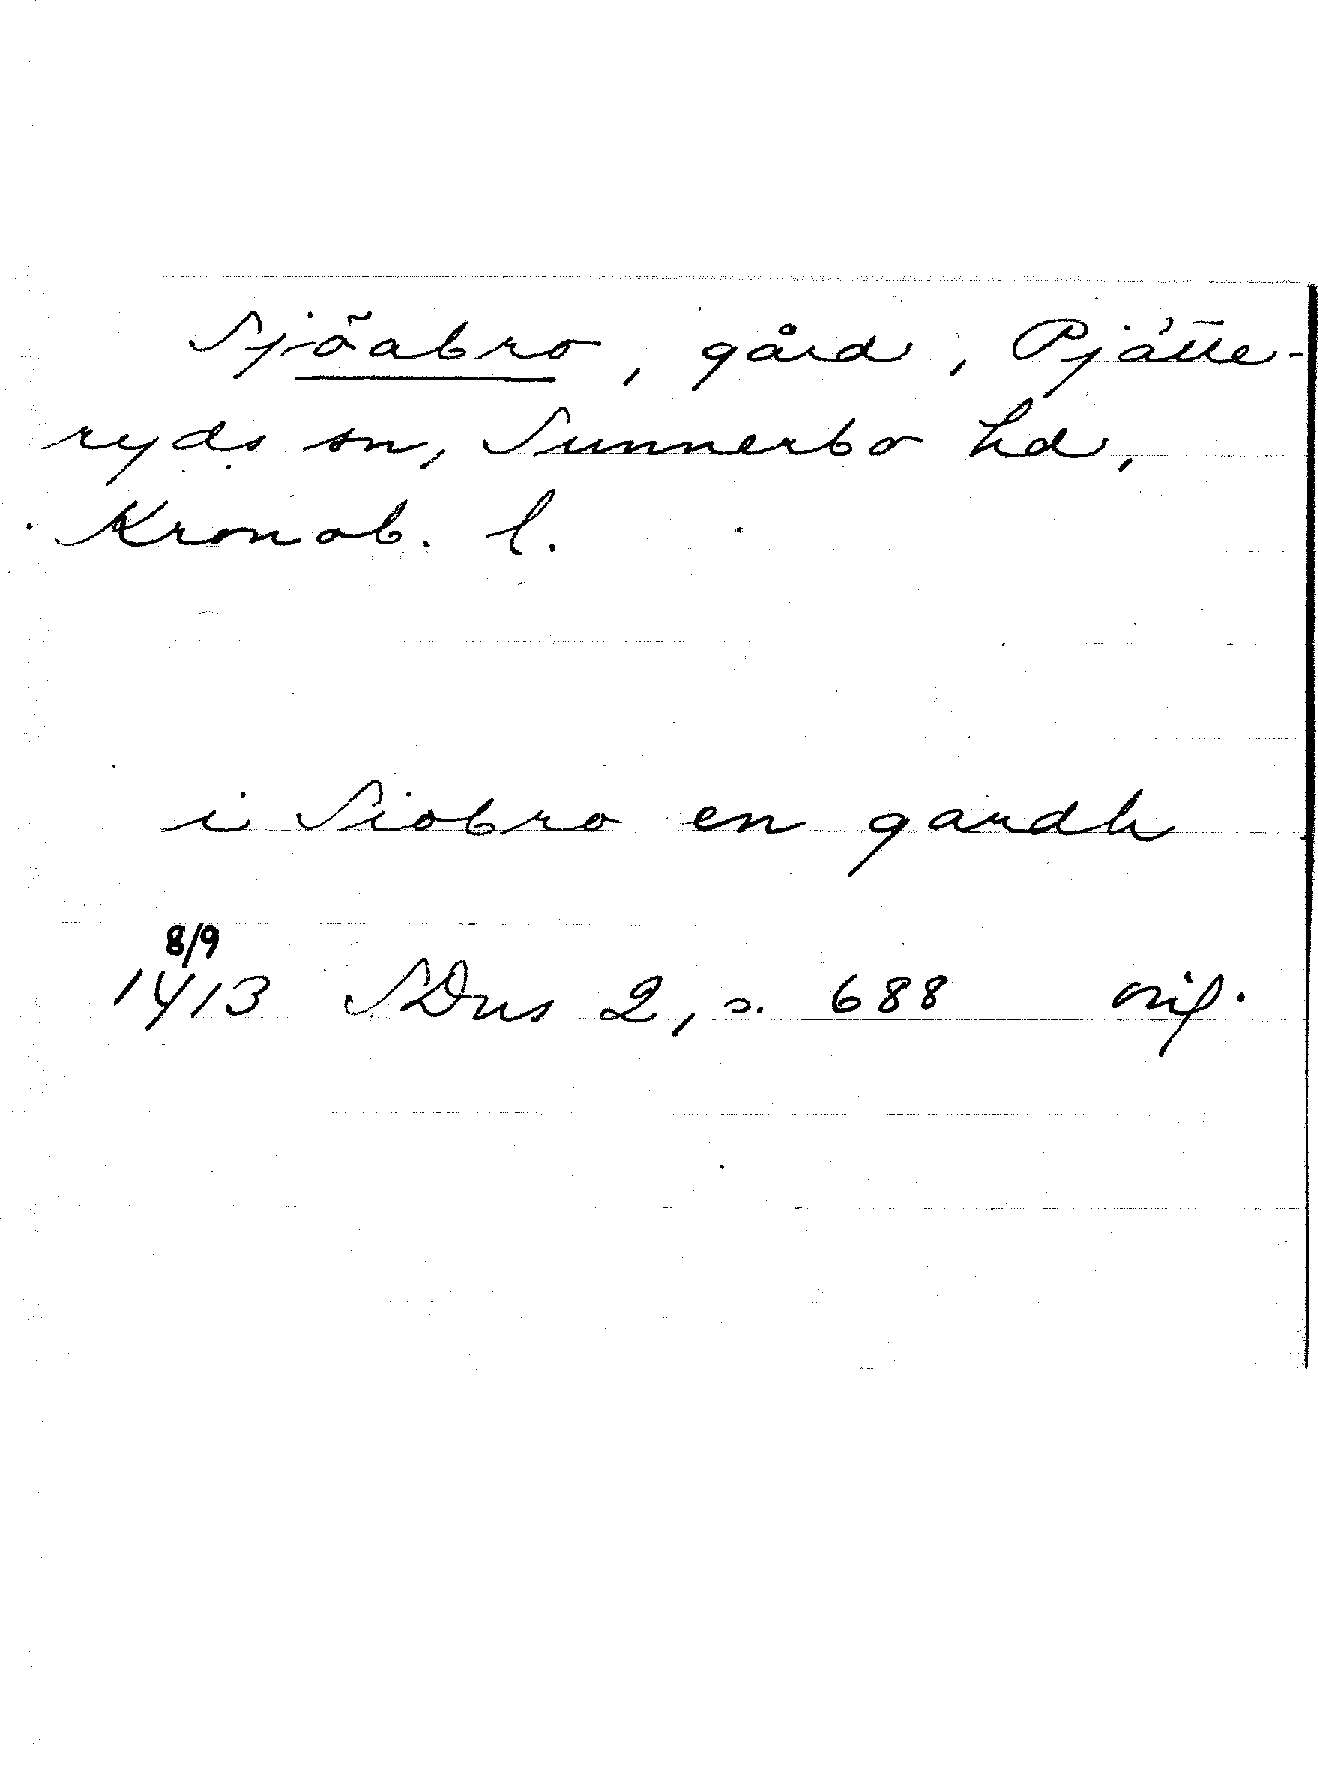 Sjöabro, gård, Pjätte-
ryds sn, Sunnerbo hd,
Kronob. l.
i Siobro en gardh
8/9
1413 SDns 2, s. 688 orig.